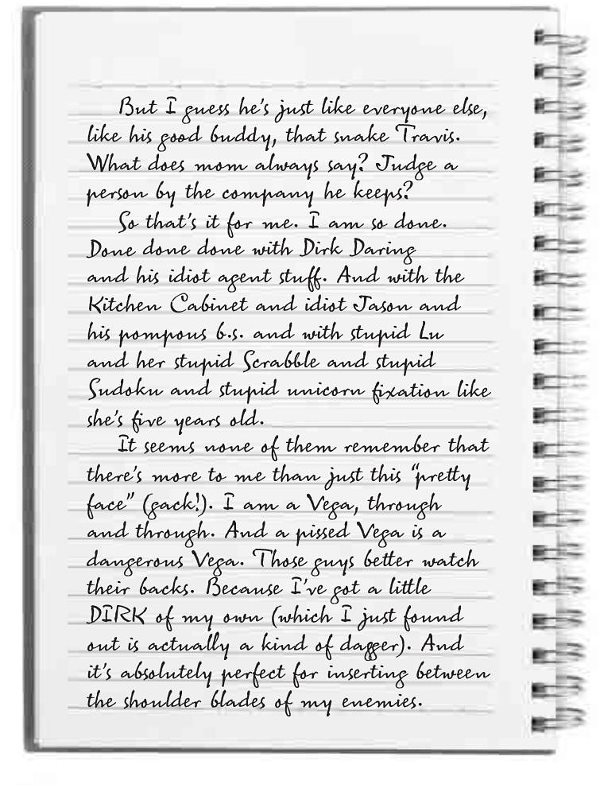 But I guess he's just like everyone else,
like his good buddy, that snake Travis.
What does mom always say? Judge a
person by the company he keeps?
So that's it for me. I am so done.
Done done done with Dirk Daring
and his idiot agent stuff. And with the
Kitchen Cabinet and idiot Jason and
his pompous b.s. and with stupid Lu
and her stupid Scrabble and stupid
Sudoku and stupid unicorn fixation like
she's five years old.
It seems none of them remember that
there's more to me than just this "pretty
face" (gack!). I am a Vega, through
and through. And a pissed Vega is a
dangerous Vega. Those guys better watch
their backs. Because I've got a little
DIRK of my own (which I just found
out is actually a kind of dagger). And
it's absolutely perfect for inserting between
the shoulder blades of my enemies.